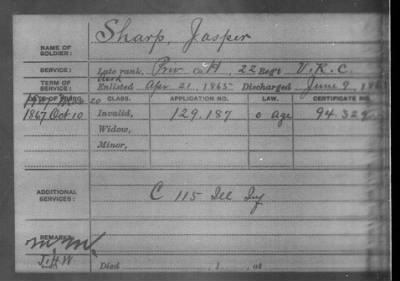 Sharp, Jasper
NAME OF SOLDIER:
SERVICE: Late rank, Priv Co. H, 22 Reg't V.R.C.
TERM OF SERVICE: Enlisted Apr 21, 1865 Discharged June 9, 186
DATE OF FILING. CLASS. APPLICATION NO. LAW. CERTIFICATE NO.
1867 Oct 10 Invalid, 129.187 94.329
Widow,
Minor,
ADDITIONAL SERVICES: C 115 Ill Inf
REMARKS:
J.H.W
Died , 1 , at